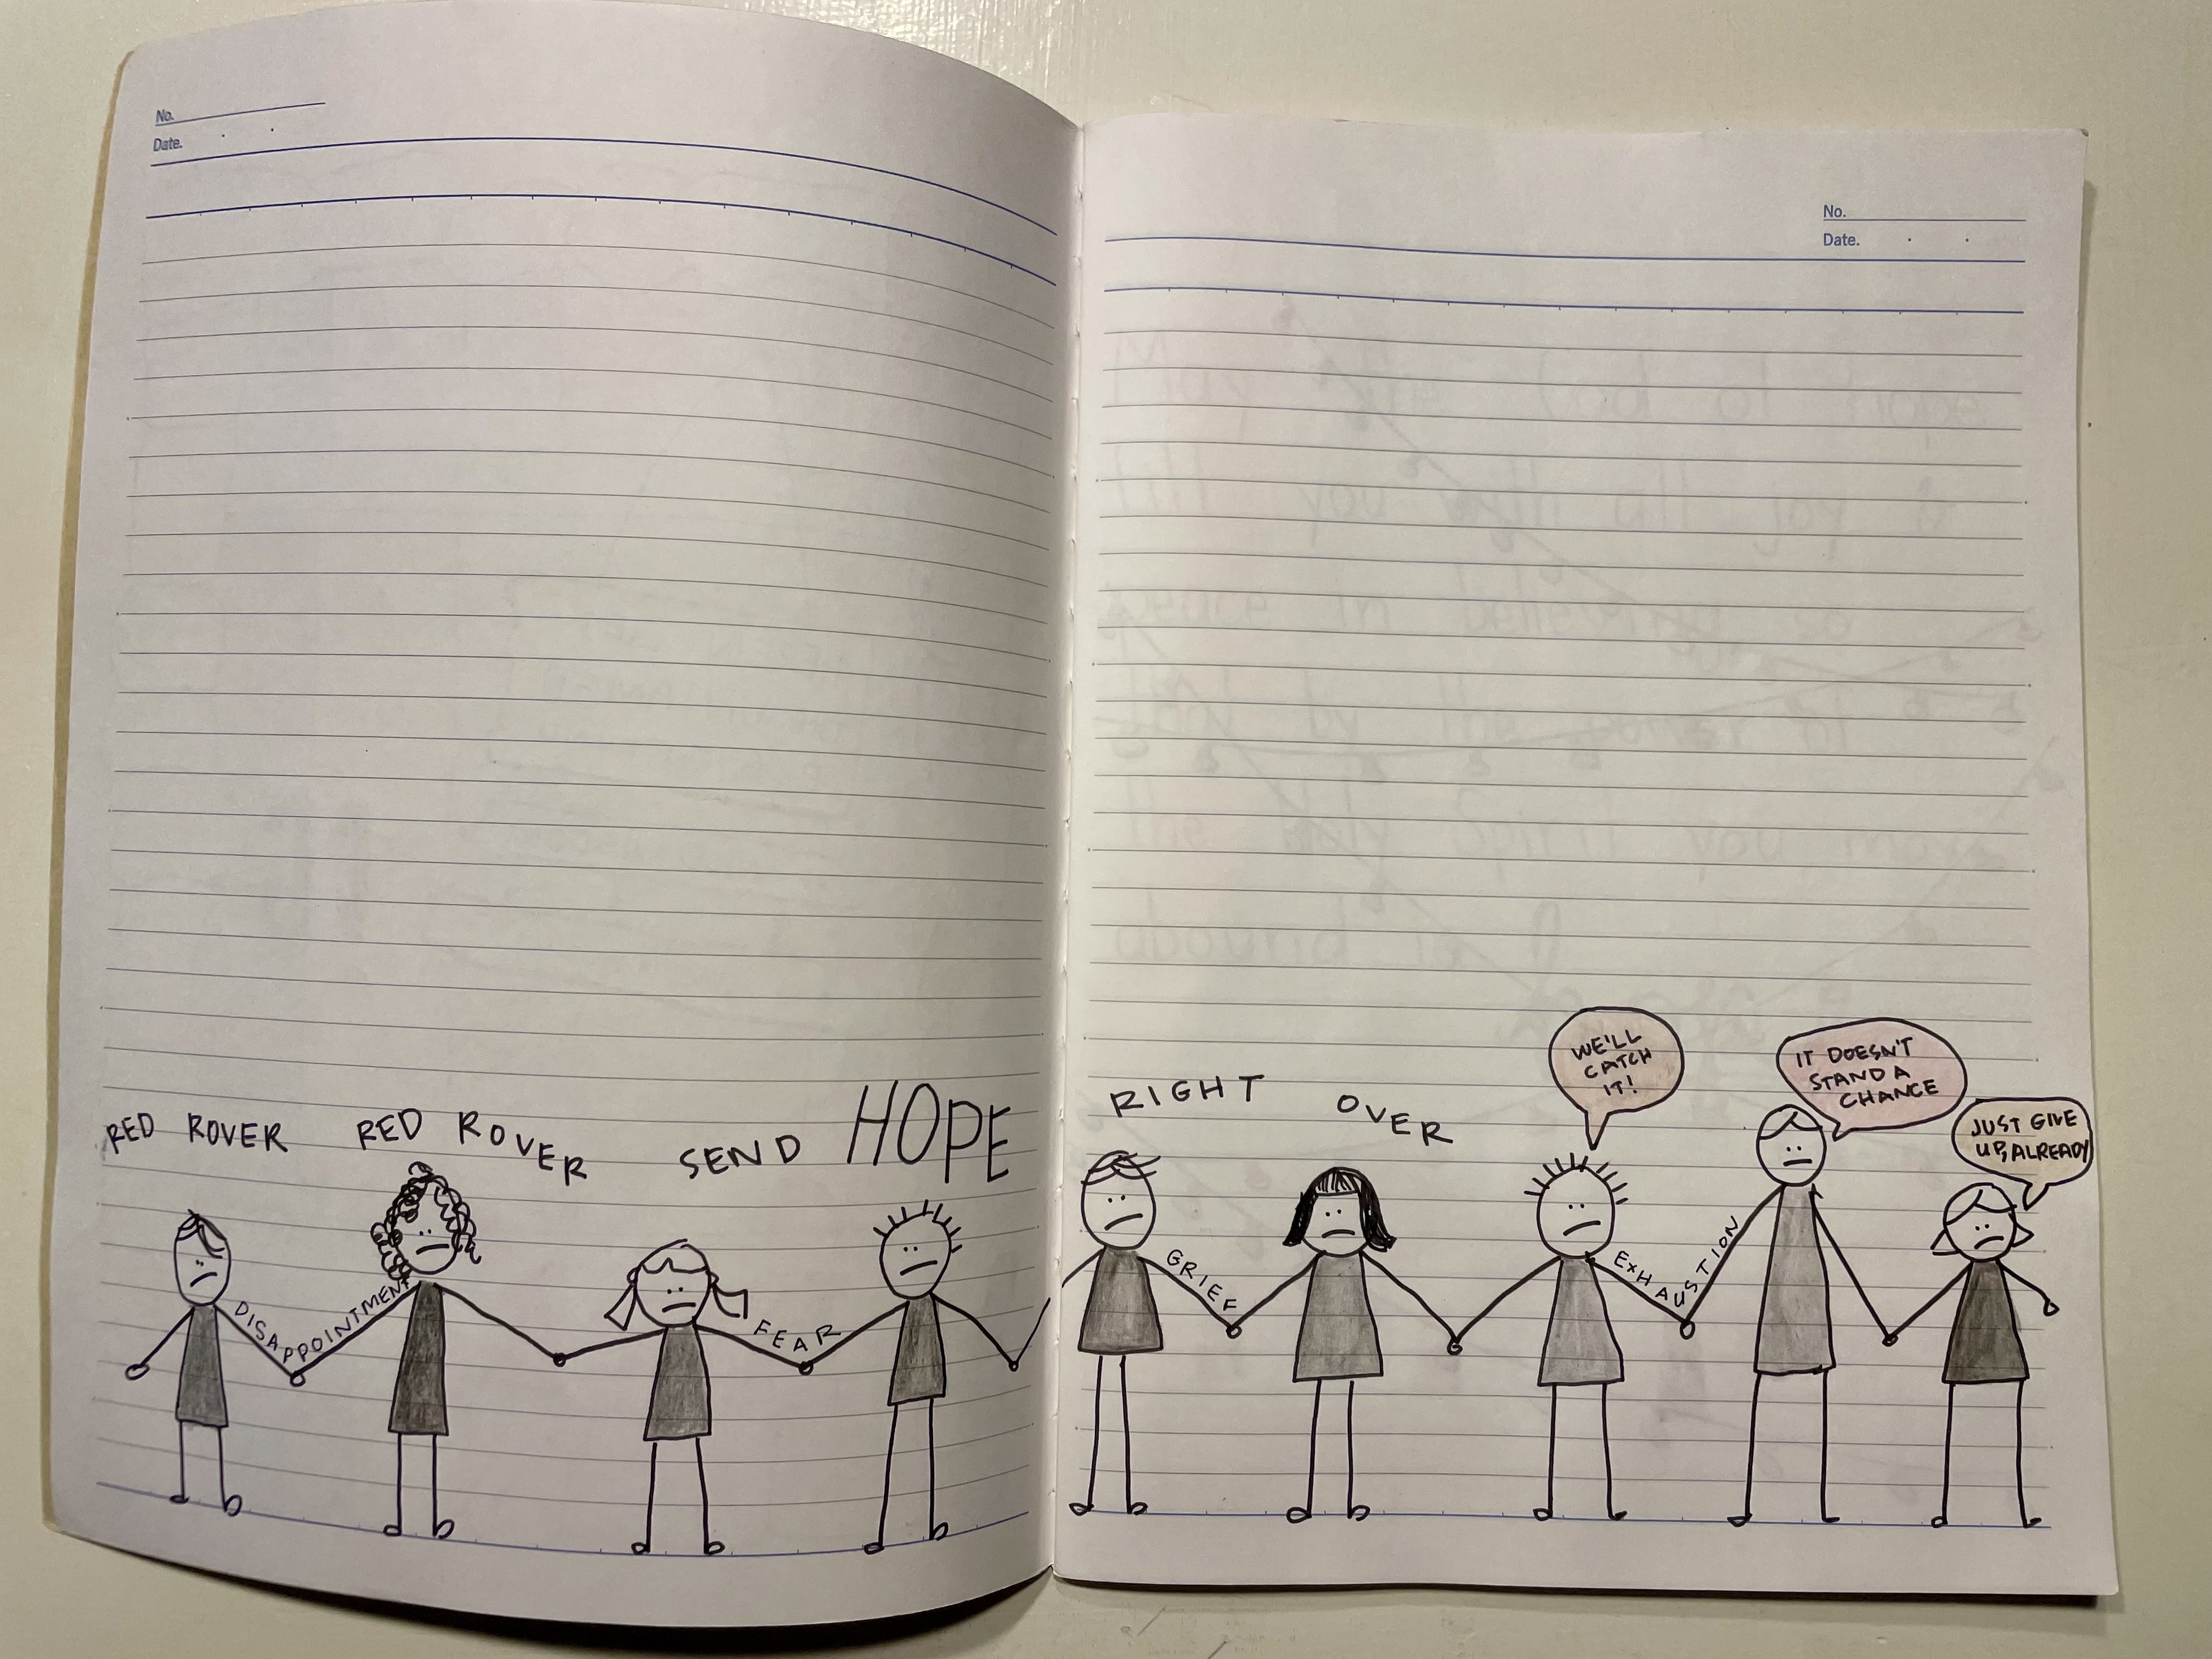 No.
Date.
RED ROVER RED ROVER SEND HOPE
DISAPPOINTMENT
FEAR
No.
Date.
RIGHT OVER
WE'LL
CATCH
IT!
IT DOESN'T
STAND A
CHANCE
JUST GIVE
UP, ALREADY
GRIEF
EXHAUSTION